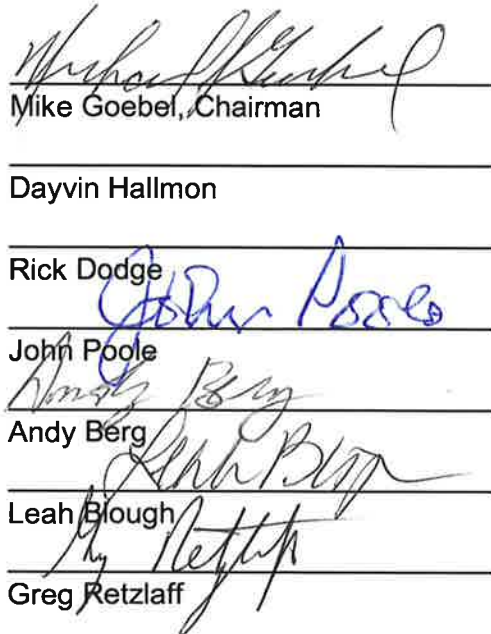 Michael Goebel
Mike Goebel, Chairman
Dayvin Hallmon
Rick Dodge
John Poole
John Poole
Andy Berg
Andy Berg
Leah Blough
Leah Blough
Greg Retzlaff
Greg Retzlaff